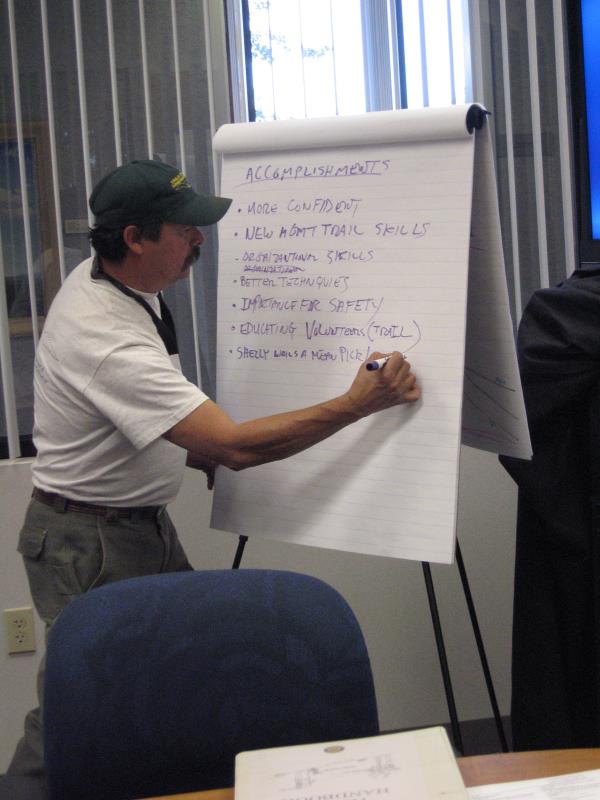 ACCOMPLISHMENTS
• MORE CONFIDENT
• NEW MGMT TRAIL SKILLS
- ORGAIZANTIONAL SKILLS
• BETTER TECHNQUIES
• IMPORTANCE FOR SAFETY
• EDUCATING VOLUNTEERS (TRAIL)
• SHELLY WEILS A MEAN PICK!
HANDBOOK